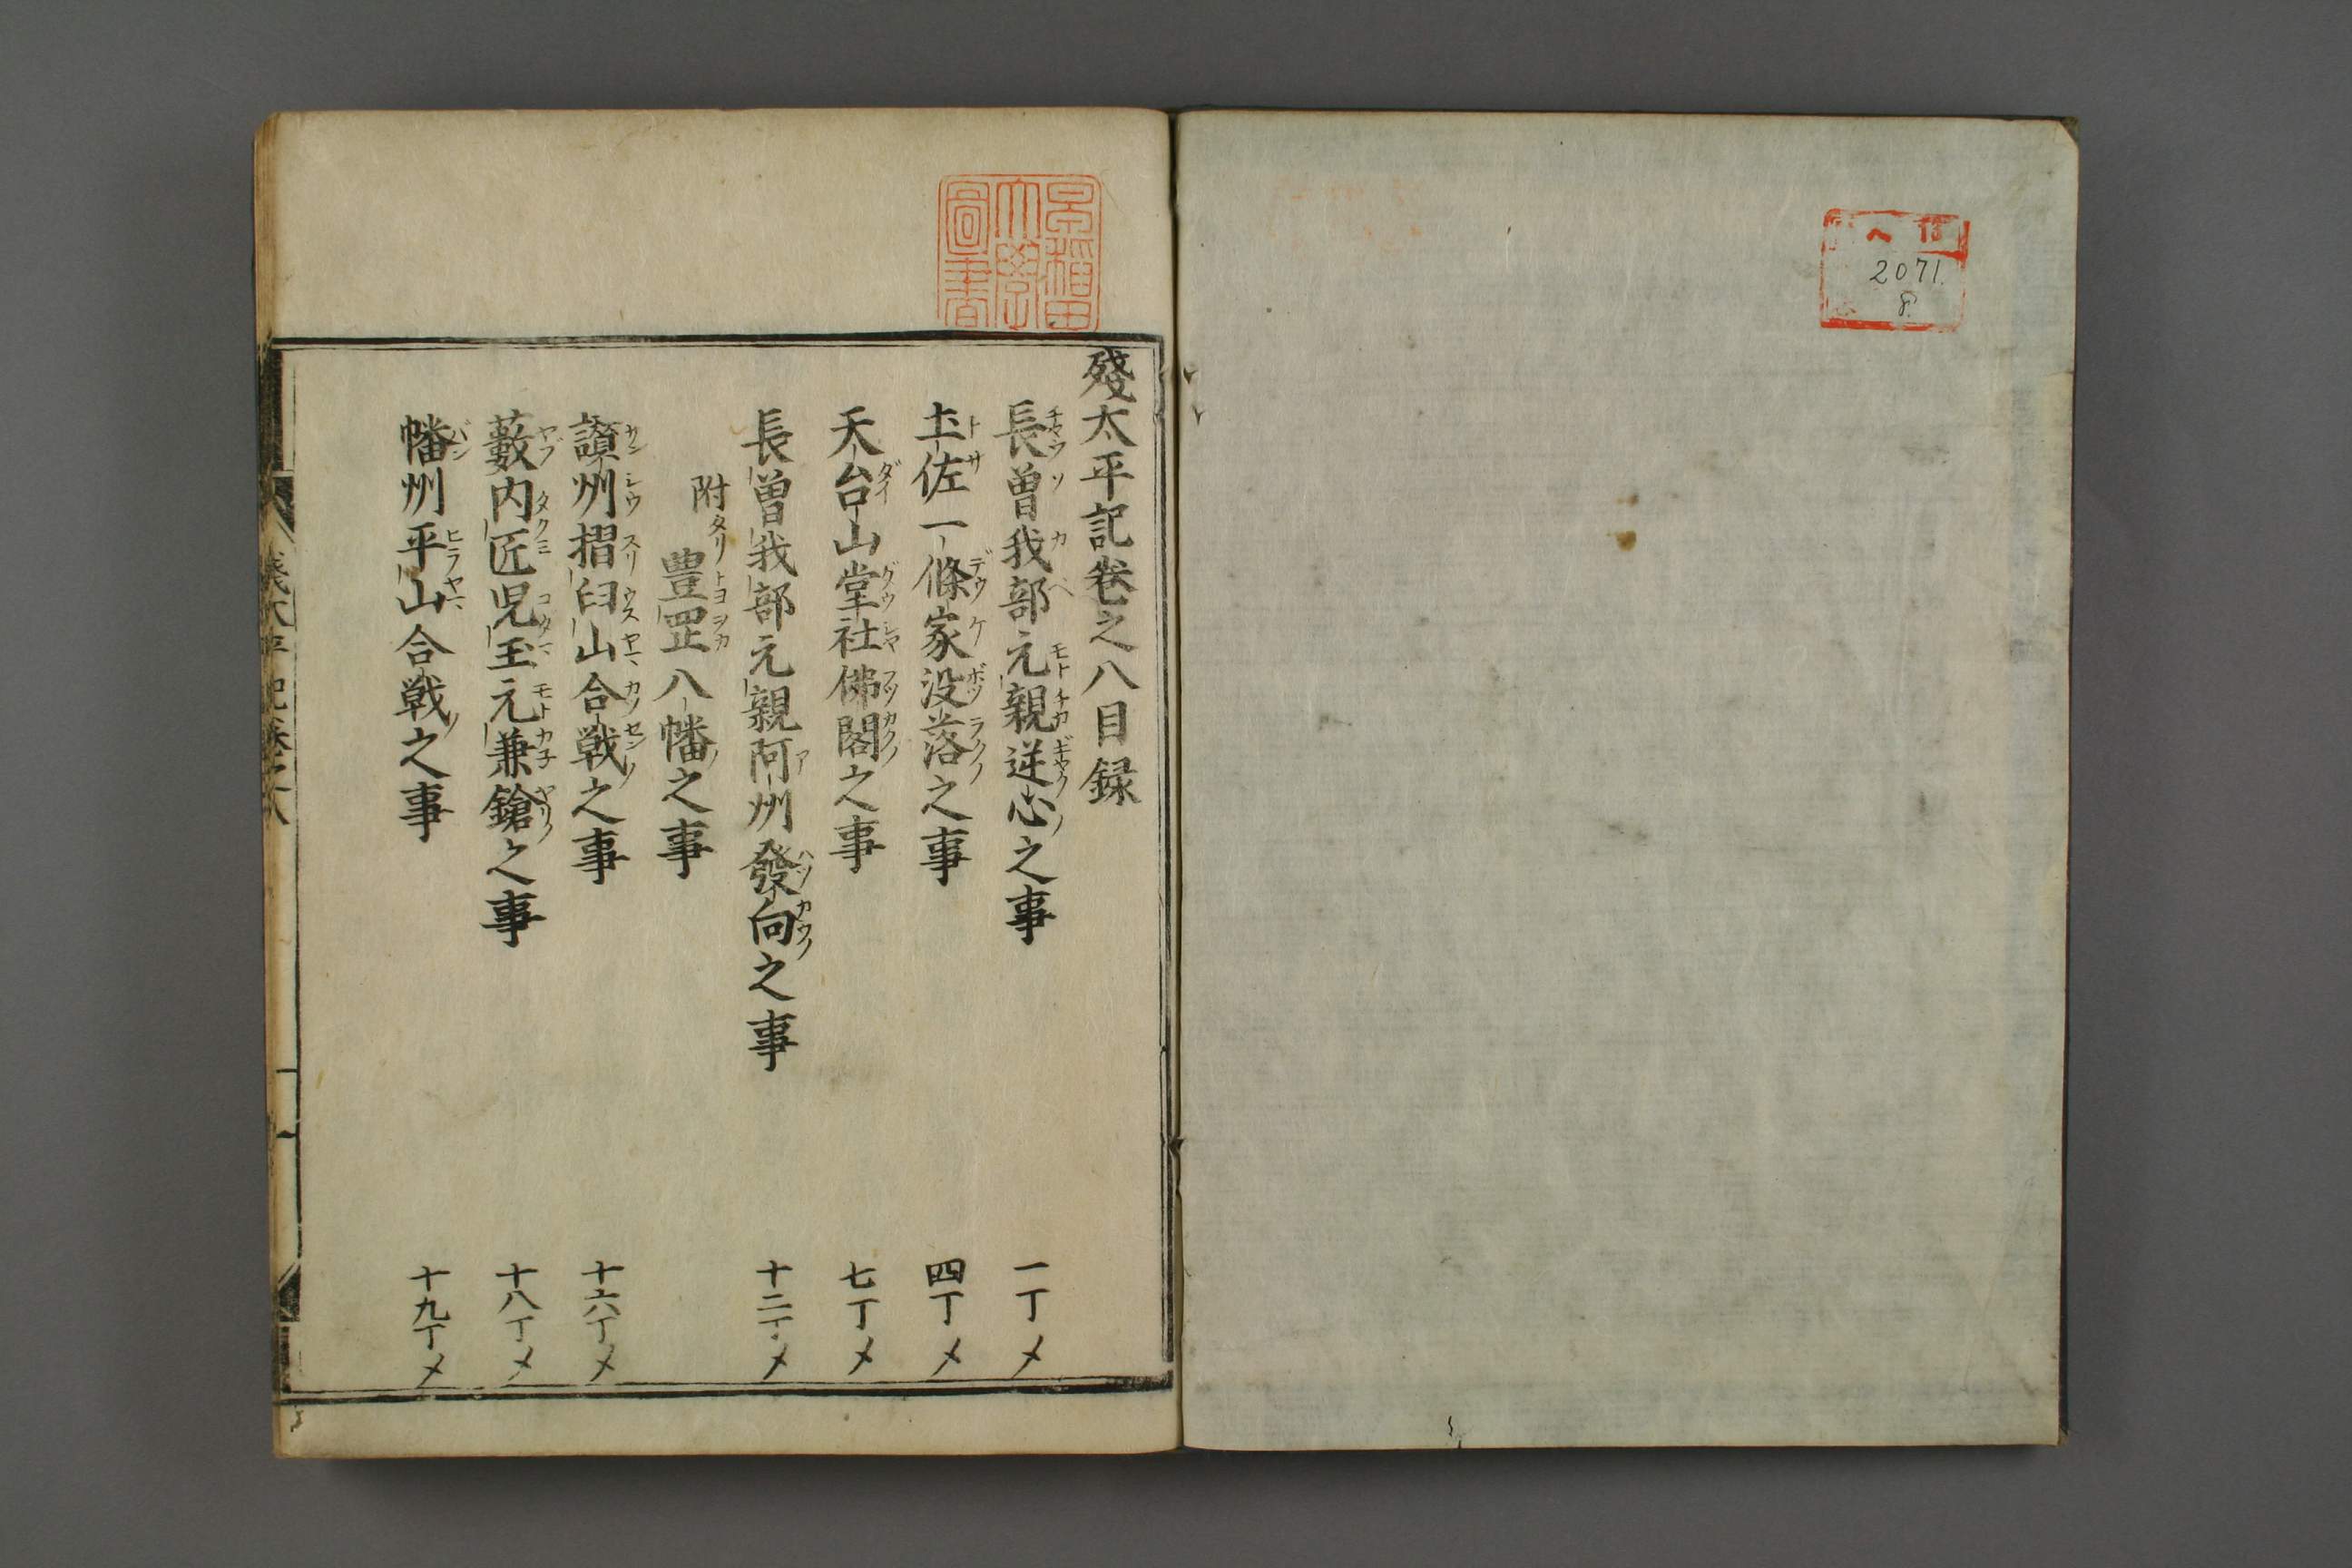 2071.
8.
早稲田
大學
圖書
殘太平記卷之八目録
長曽我部元親逆心之事 一丁メ
土佐一條家没落之事 四丁メ
天台山堂社佛閣之事 七丁メ
長曽我部元親阿州發向之事 十二丁メ
附豊罡八幡之事
讃州摺臼山合戦之事 十六丁メ
藪内匠児玉元兼鎗之事 十八丁メ
幡州平山合戦之事 十九丁メ